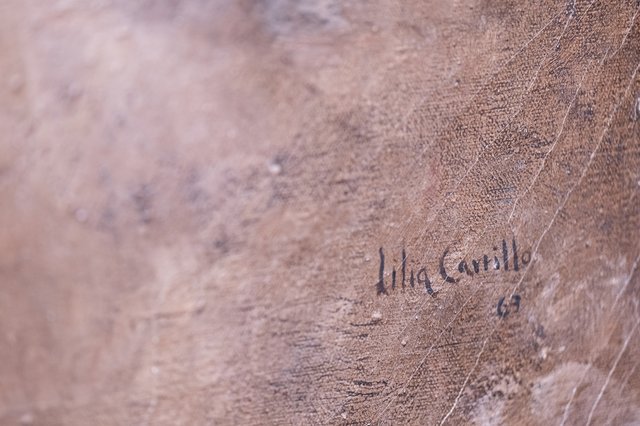 Lilia Carrillo
63